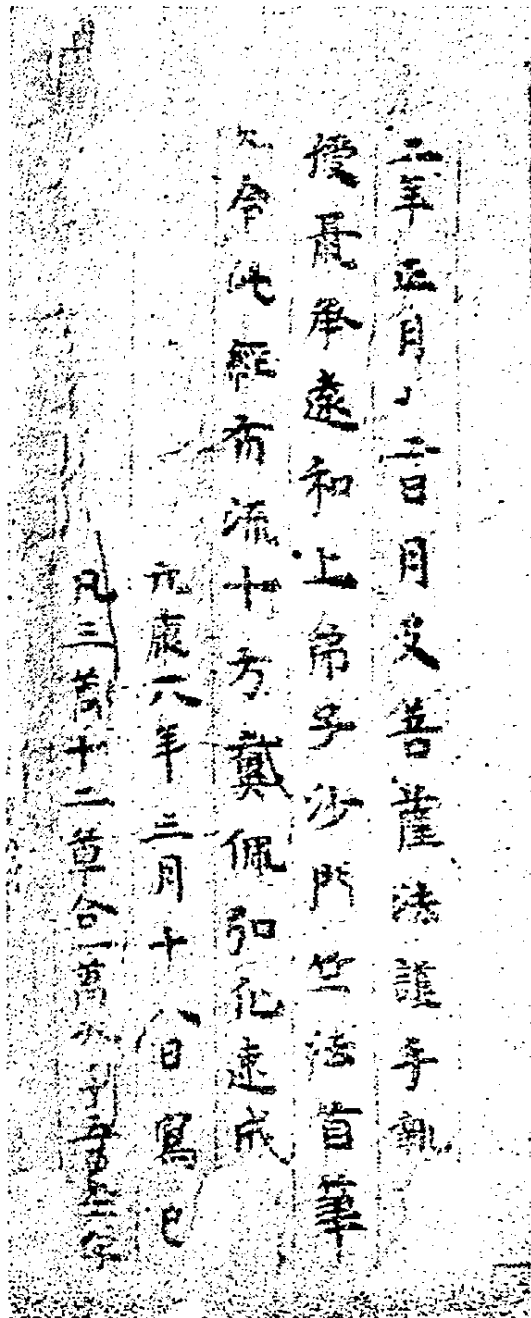 二年正月十二日月支菩薩法護手執
授聶承遠和上弟子沙門竺法首筆
令此經布流十方戴佩弘化速成
元康六年三月十八日寫已
凡三萬十二章合一萬九千字